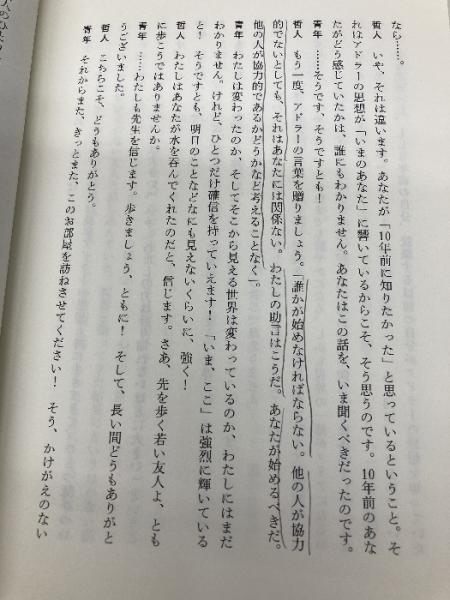 なら……。
哲人　いや、それは違います。あなたが「10年前に知りたかった」と思っているということ。そ
れはアドラーの思想が「いまのあなた」に響いているからこそ、そう思うのです。10年前のあな
たがどう感じていたかは、誰にもわかりません。あなたはこの話を、いま聞くべきだったのです。
青年　……そうです、そうですとも！
哲人　もう一度、アドラーの言葉を贈りましょう。「誰かが始めなければならない。他の人が協力
的でないとしても、それはあなたには関係ない。わたしの助言はこうだ。あなたが始めるべきだ。
他の人が協力的であるかどうかなど考えることなく」。
青年　わたしは変わったのか、そしてそこから見える世界は変わっているのか、わたしにはまだ
わかりません。けれど、ひとつだけ確信を持っていえます！　「いま、ここ」は強烈に輝いている
と！　そうですとも、明日のことなどなにも見えないくらいに、強く！
哲人　わたしはあなたが水を呑んでくれたのだと、信じます。さあ、先を歩く若い友人よ、とも
に歩こうではありませんか。
青年　……わたしも先生を信じます。歩きましょう、ともに！　そして、長い間どうもありがと
うございました。
哲人　こちらこそ、どうもありがとう。
青年　それからまた、きっとまた、このお部屋を訪ねさせてください！　そう、かけがえのない